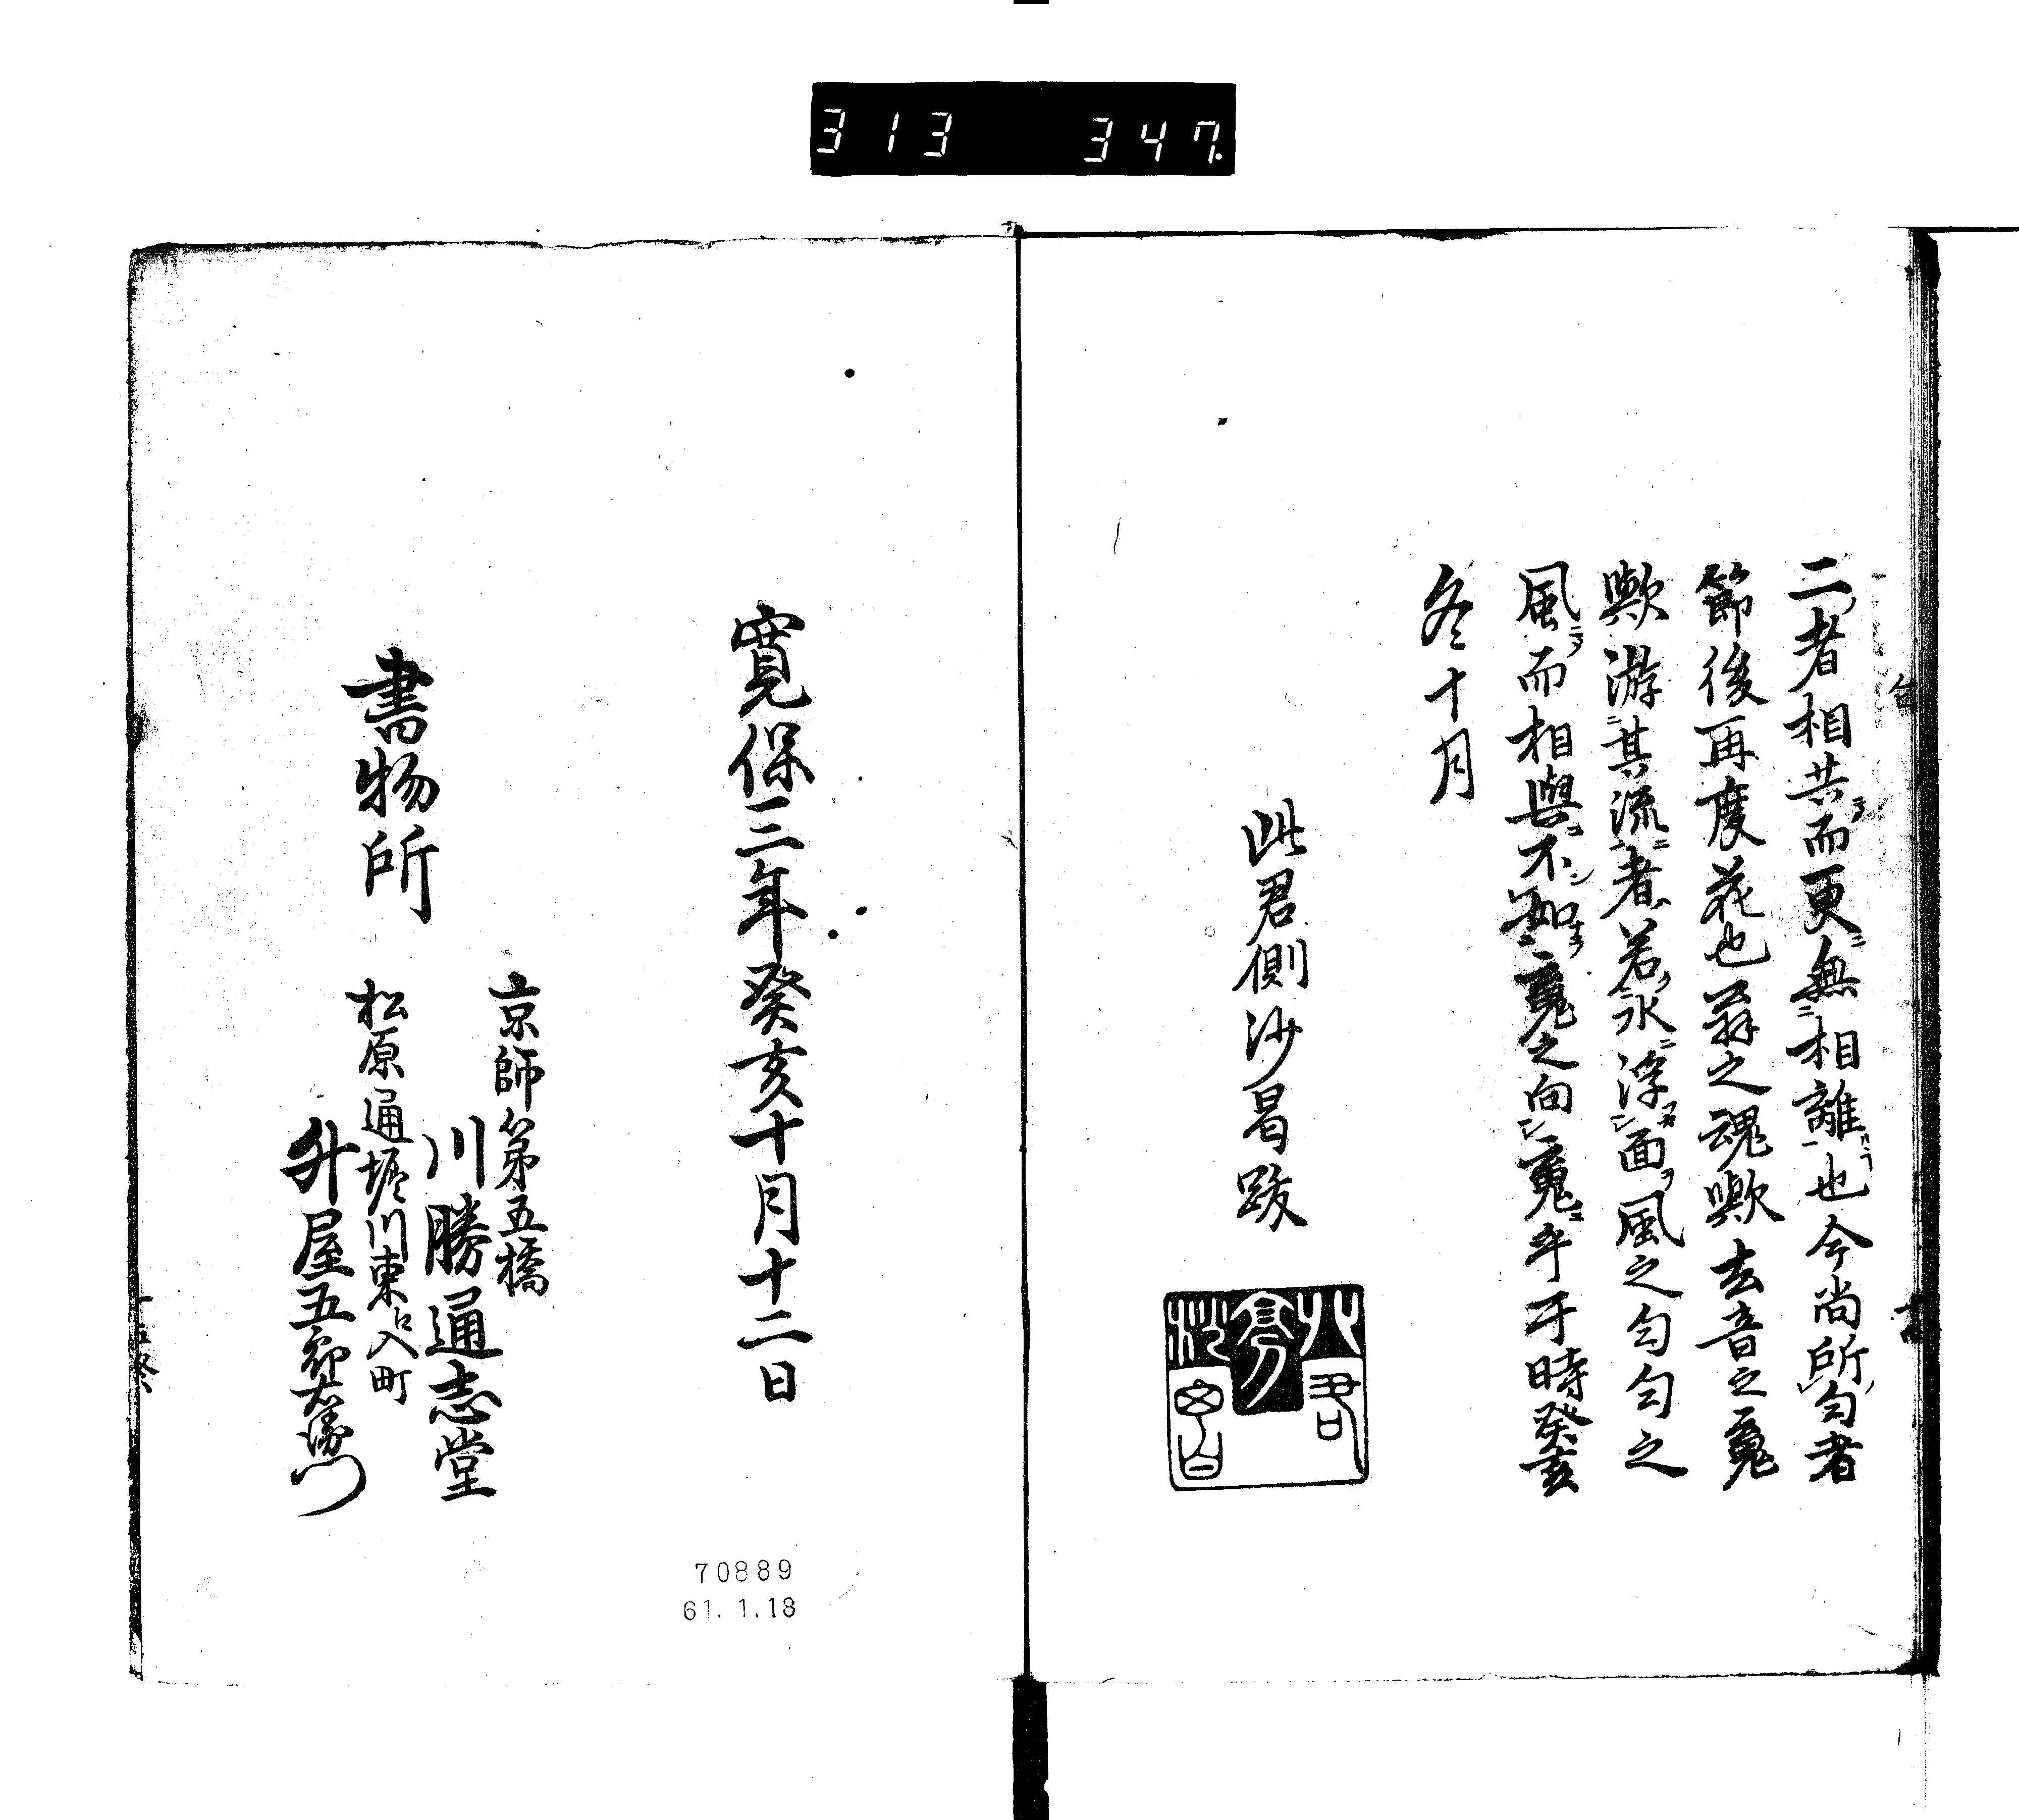 313 347.
二者相共而更無相離也今尚所匂者
節後再度花也翁之魂歟去音之寬
歟游其流者若永浮面風之匂匂之
風而相與不知之向乎于時癸亥
冬十月
此君側沙昌跋
寛保三年癸亥十月十二日
京師第五橋
川勝通志堂
書物所
松原通堀川東江入町
升屋五郎右衛門
70889
61.1.18